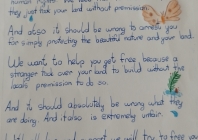 they just take your land without permission.
And also it should be wrong to arrest you
for simply protecting the beautiful nature and your land.
We want to help you get free because a
stranger took over your land to build without the
gods premission to do so.
And it should absolutely be wrong what they
are doing. And it also is extremely unfair.
we will try to free you